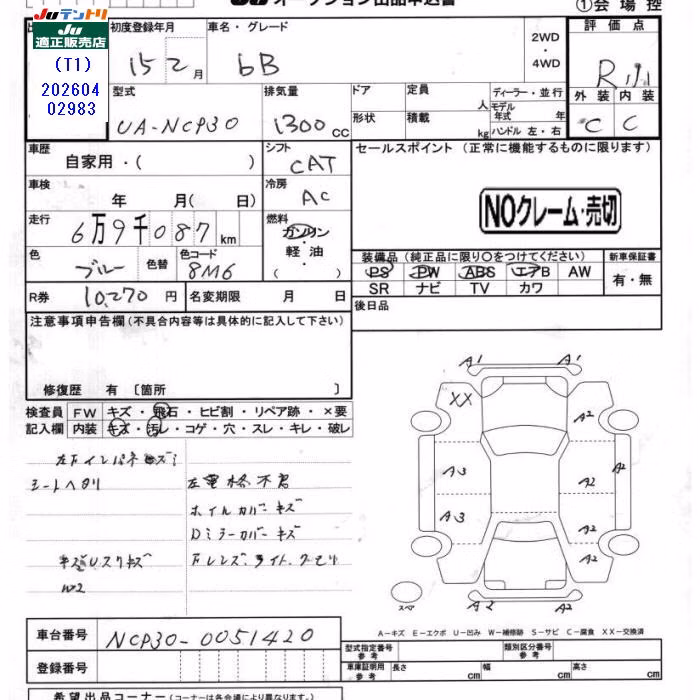 Juテントリ
Ju
適正販売店
(T1)
202604
02983
Ju オークション出品申込書
①会場控
初度登録年月
車名・グレード
15 2月
bB
2WD
・
4WD
評価点
型式
排気量
ドア
定員
人
ディーラー・並行
モデル年式 年
外装 内装
UA-NCP30
1300 CC
形状
積載
kg
ハンドル 左・右
C C
車歴
自家用・( )
シフト
CAT
セールスポイント (正常に機能するものに限ります)
車検
年 月( 日)
冷房
AC
NOクレーム・売切
走行
6万9千087 km
燃料
ガソリン
・
軽油
・
( )
色
ブルー
色替
色コード
8M6
装備品 (純正品に限り○をつけてください)
新車保証書
PS PW ABS エアB AW
SR ナビ TV カワ
有・無
R券
10,270 円
名変期限 月 日
後日品
注意事項申告欄(不具合内容等は具体的に記入して下さい)
修復歴 有 〔箇所 〕
検査員
記入欄
FW キズ・飛石・ヒビ割・リペア跡・×要
内装 キズ・汚レ・コゲ・穴・スレ・キレ・破レ
シートヘタリ
ホイルカバーキズ
Dミラーカバーキズ
W2
A1 A1
XX
A2
A3
A2
A2
A3
A2
A2
A2 A2
スペア
A-キズ E-エクボ U-凹み W-補修跡 S-サビ C-腐食 XX-交換済
車台番号
NCP30-0051420
登録番号
型式指定番号
参考
類別区分番号
参考
車庫証明用
参考
長さ cm
幅 cm
高さ cm
希望出品コーナー(コーナーは各会場により異なります。)